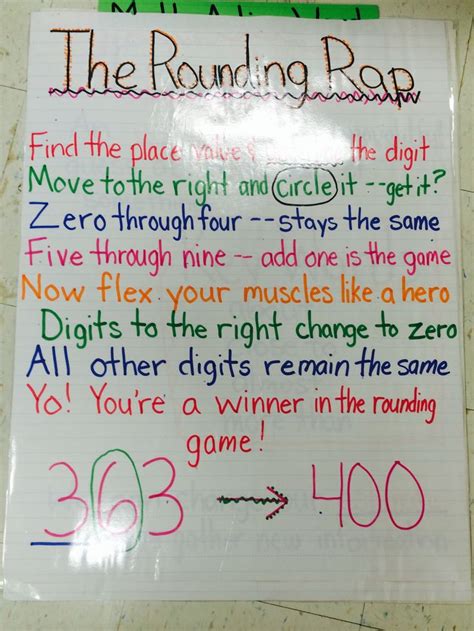 The Rounding Rap
Find the place value & the digit
Move to the right and circle it -- get it?
Zero through four -- stays the same
Five through nine -- add one is the game
Now flex your muscles like a hero
Digits to the right change to zero
All other digits remain the same
Yo! You're a winner in the rounding
game!
363 → 400